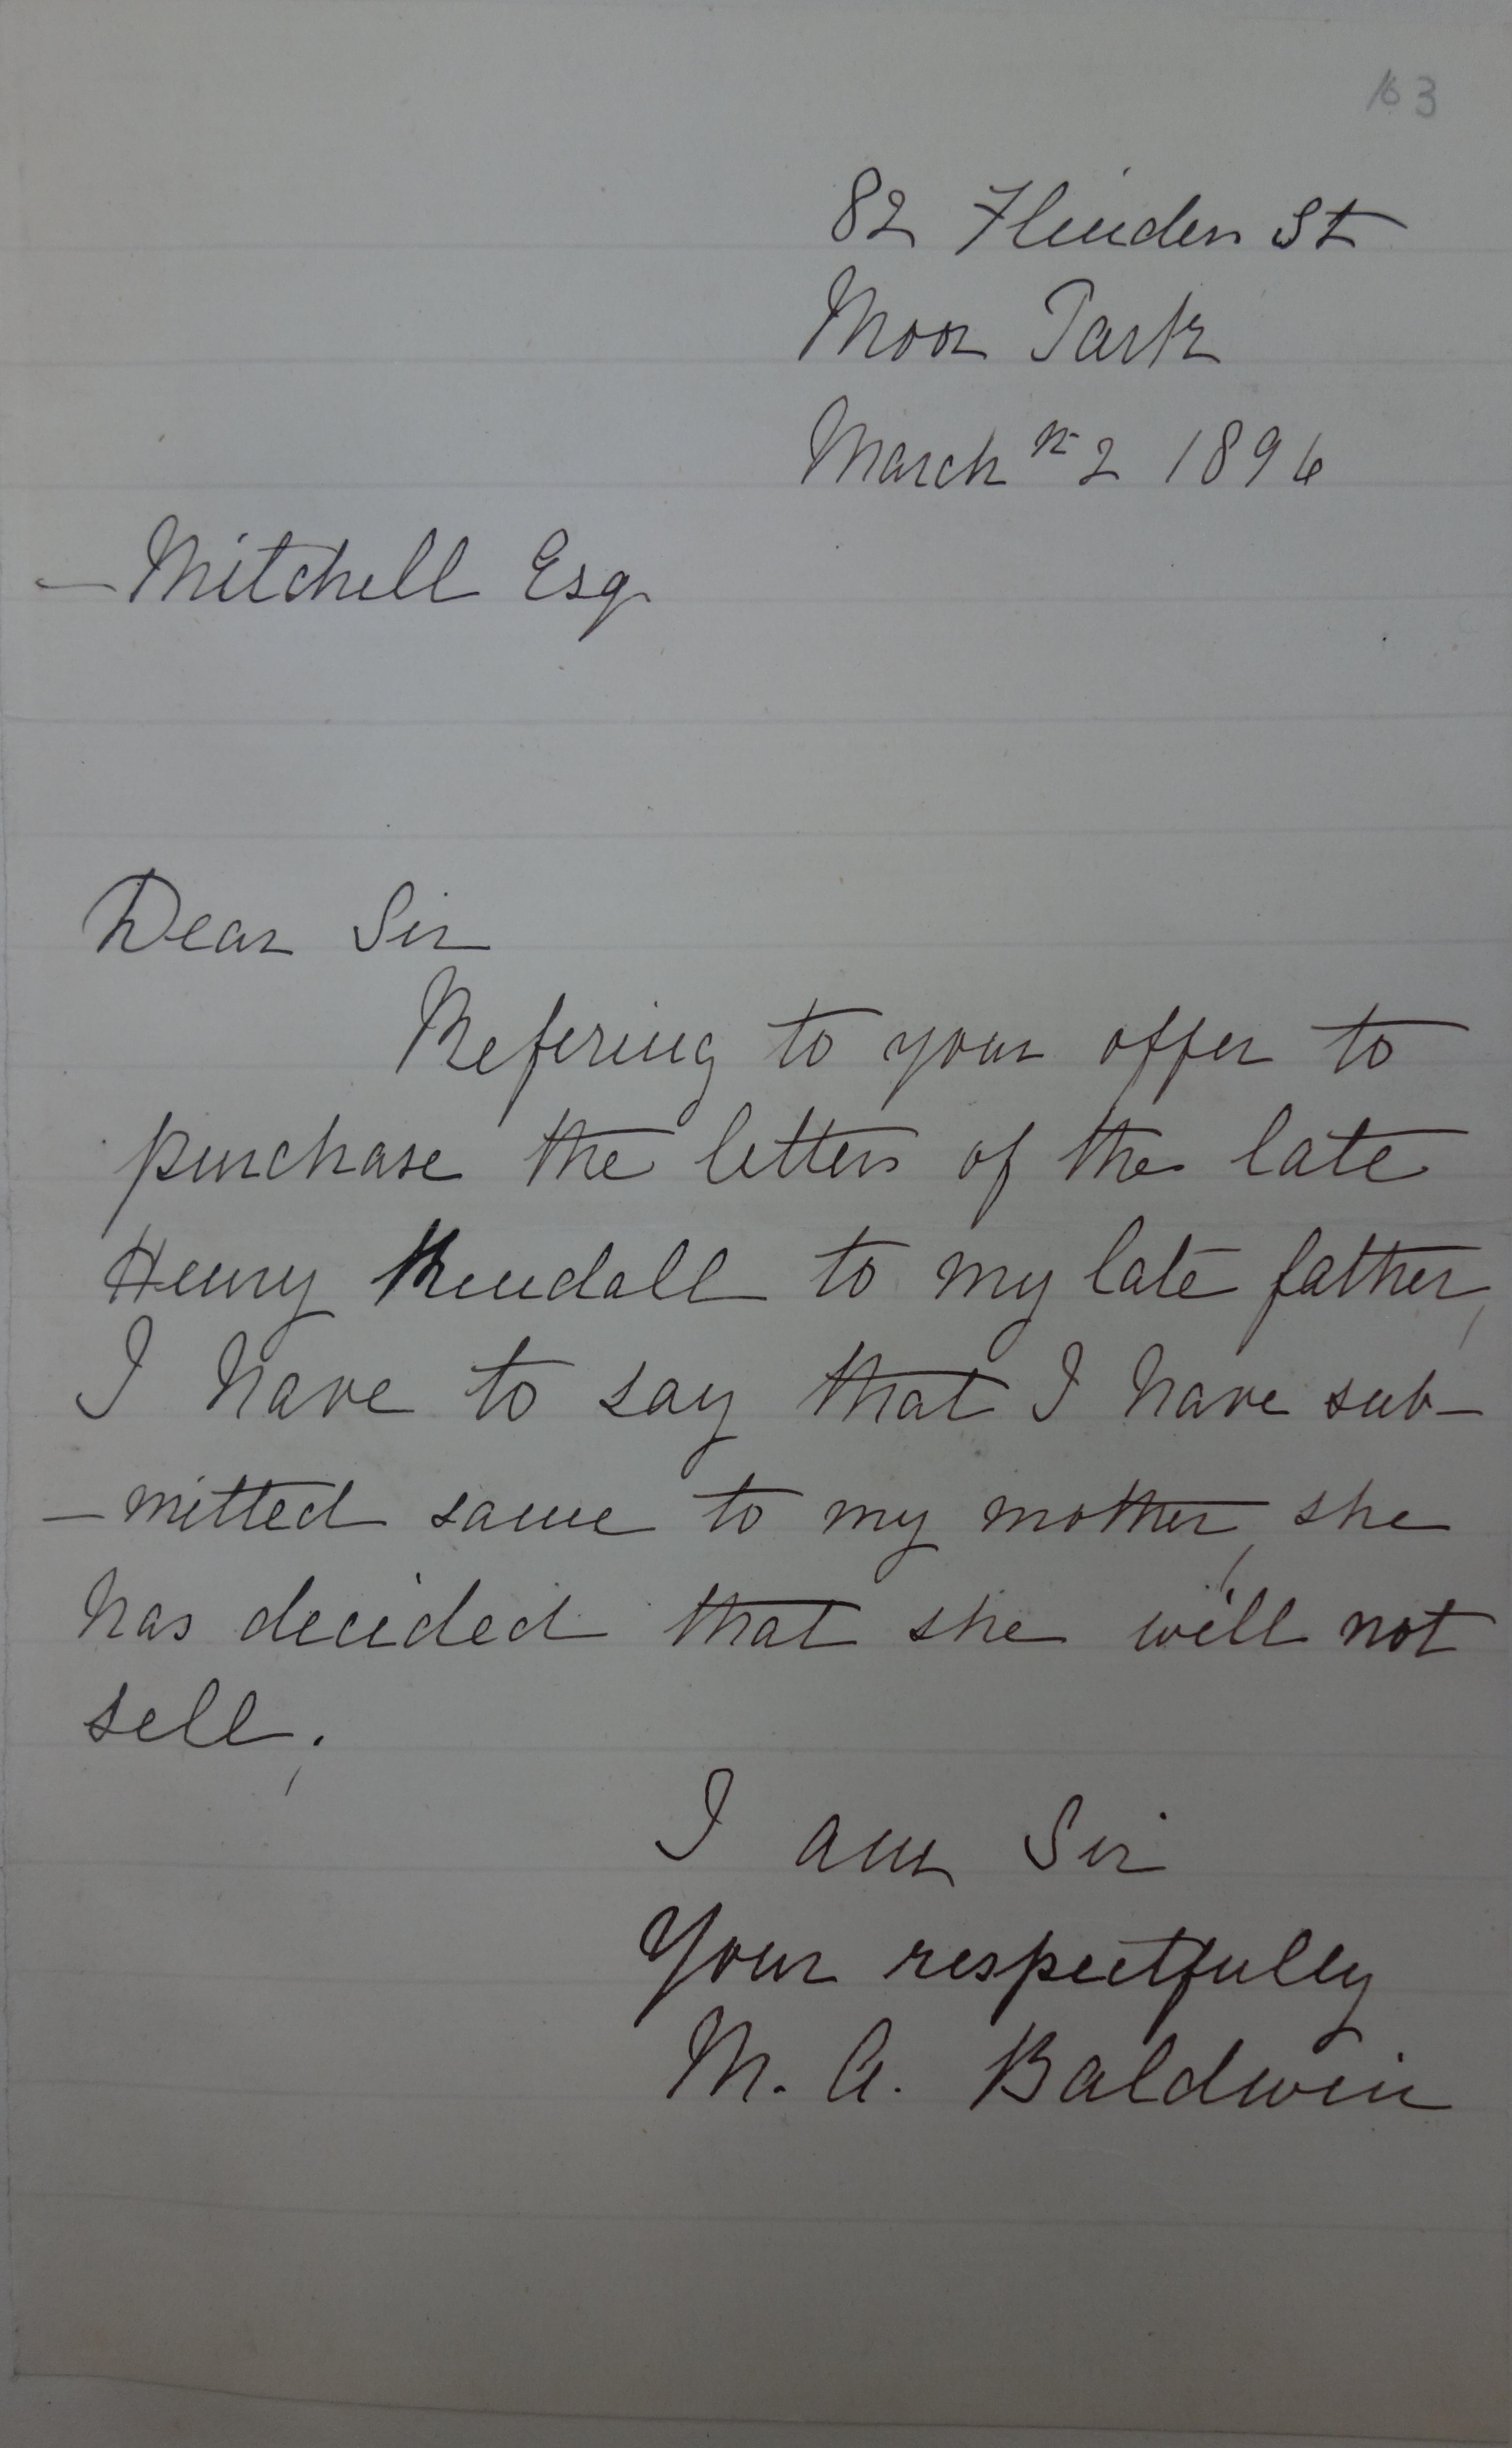 163
82 Flinders St
Moor Park
March 2 1896
— Mitchell Esq.
Dear Sir
Refering to your offer to
purchase the letters of the late
Henry Kendall to my late father,
I have to say that I have sub-
-mitted same to my mother, she
has decided that she will not
sell.
I am Sir
Your respectfully
M. A. Baldwin